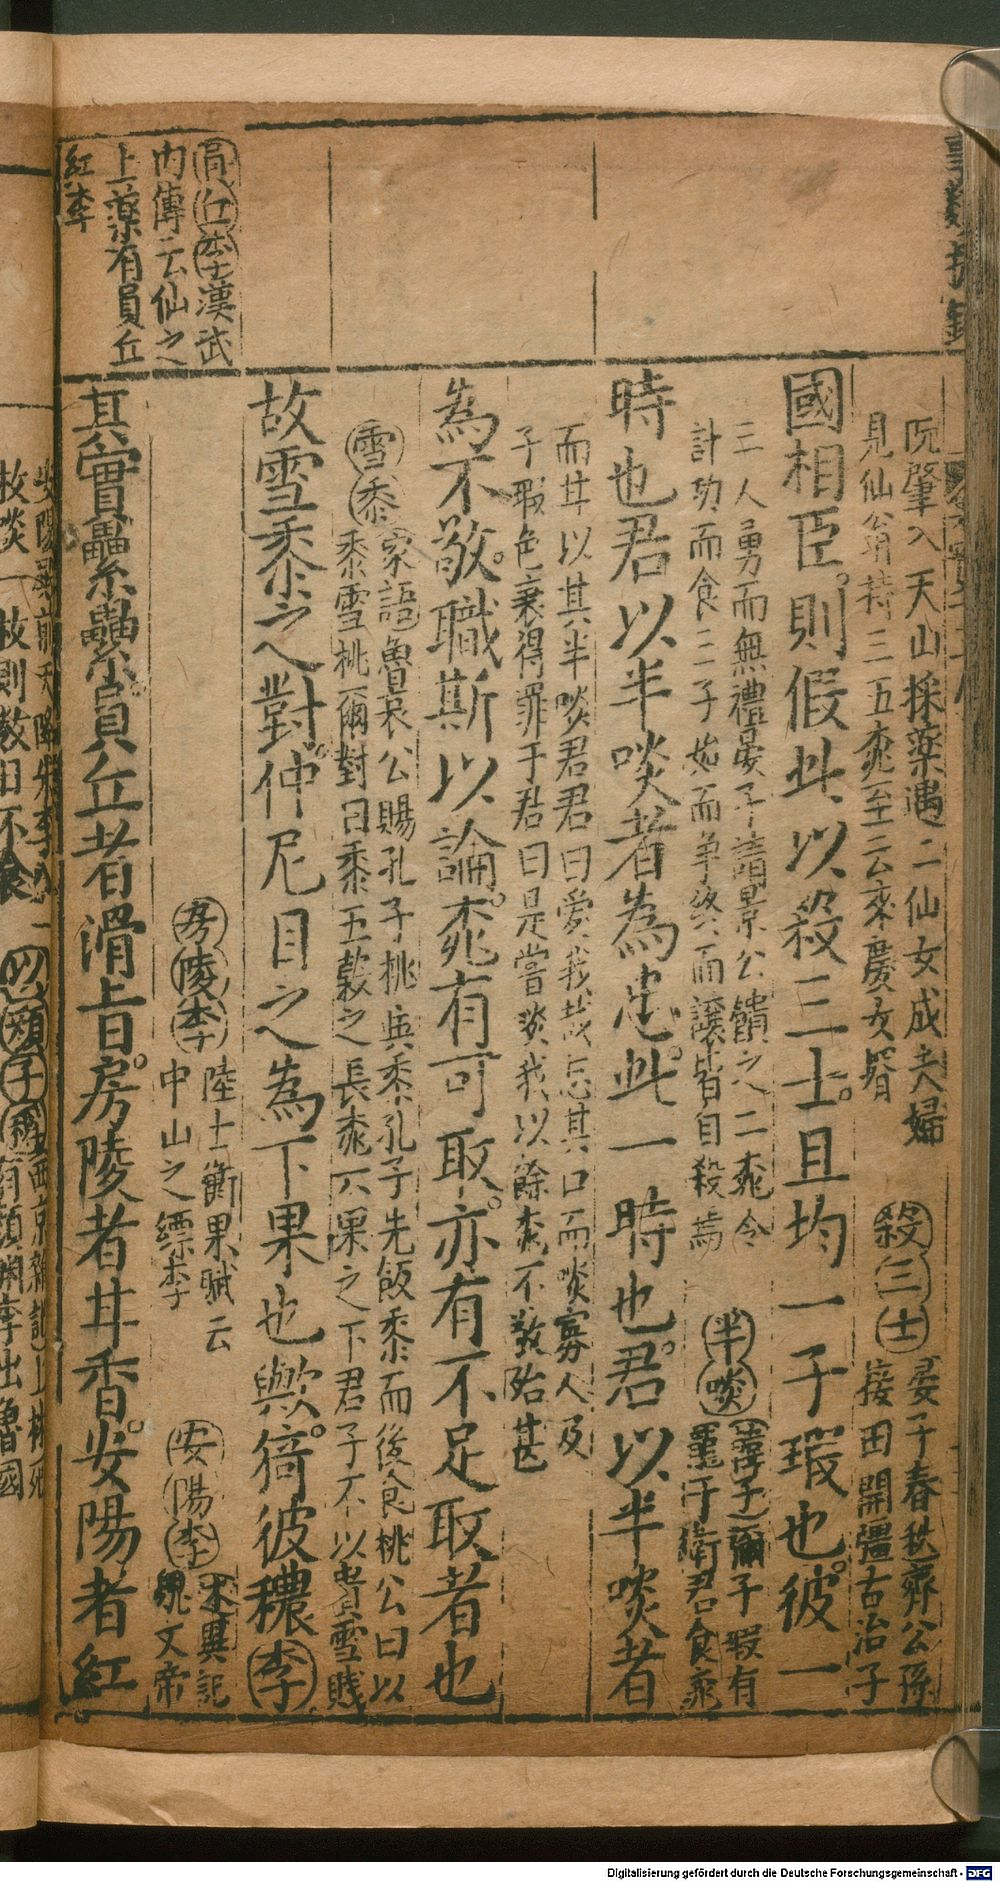 阮肇入天山採藥遇二仙女成夫婦 殺三士 晏子春秋齊公孫
見仙翁持三五桃至云來慶女婿 接田開疆古冶子
國相臣則假此以殺三士且均一子瑕也彼一
三人勇而無禮晏子請景公饋之二桃令 半啖 韓子彌子瑕有
計功而食三子始而爭終而讓皆自殺焉 寵于衛君食桃
時也君以半啖者為忠此一時也君以半啖者
而甘以其半啖君君曰愛我哉忘其口而啖寡人及
子瑕色衰得罪于君曰是嘗啖我以餘桃不敬殆甚
為不敬職斯以論桃有可取亦有不足取者也
雪黍 家語魯哀公賜孔子桃與黍孔子先飯黍而後食桃公曰以
黍雪桃爾對曰黍五穀之長桃六果之下君子不以貴雪賤
故雪黍之對仲尼目之為下果也歟猗彼穠李
房陵李 陸士衡果賦云 安陽李 述異記
中山之縹李 魏文帝
其實纍纍員丘者滑旨房陵者甘香安陽者紅
員丘李漢武
內傳云仙之
上藥有員丘
紅李
Digitalisierung gefördert durch die Deutsche Forschungsgemeinschaft - DFG